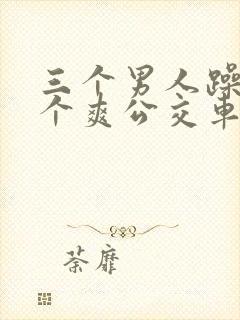 三个男人躁
个爽公交车
荼靡